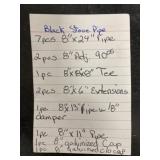 Black Stove Pipe
7pcs 8"x24" Pipe
2pcs 8" Adj. 90°
1pc 8x8x8" Tee
2pcs 8"x6" Extensions
1pc 8"x13" Pipe w/8" damper
1pc 8"x11" Pipe
1pc 8" galvanized Cap
1pc 8" galvanized